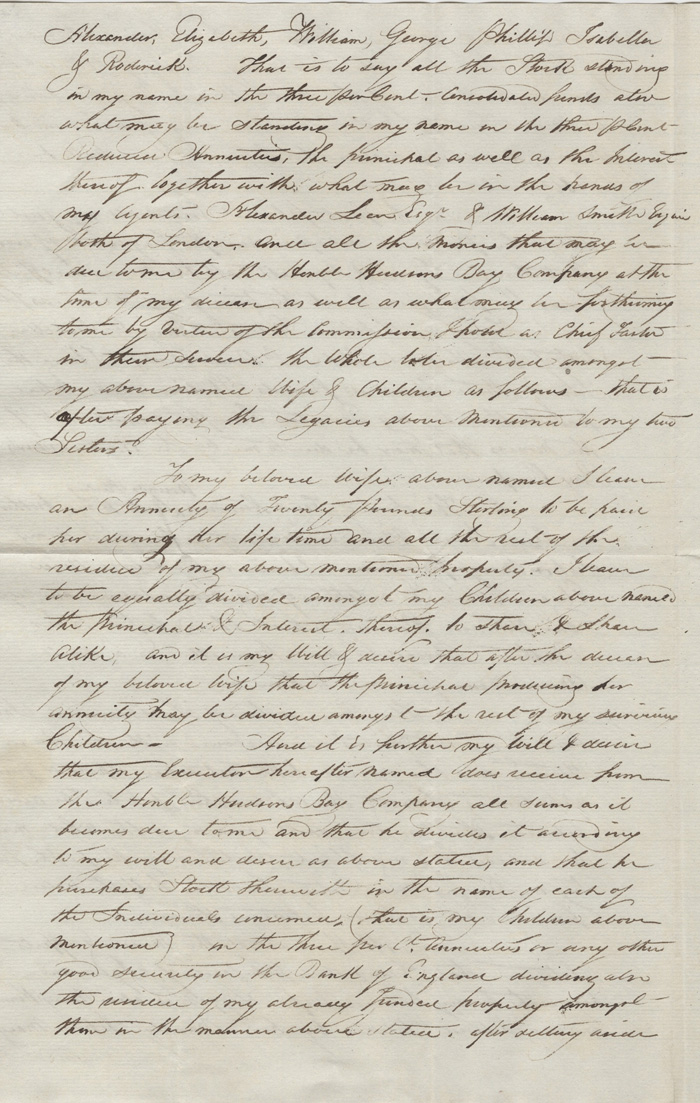 Alexander, Elizabeth, William, George Phillip Isabella
& Roderick. That is to say all the Stock standing
in my name in the three per Cent. Consolidated funds also
what may be standing in my name in the three p Cent
Reduced Annuities, the principal as well as the Interest
thereof. together with what may be in the hands of
my Agents. Alexander Lean Esqr. & William Smith Esqr
both of London. and all the Monies that may be
due to me by the Honble Hudsons Bay Company at the
time of my decease as well as what may be forthcoming
to me by virtue of the Commission I hold as Chief Factor
in their Service. the whole to be divided amongst
my above named Wife & Children as follows — that is
after paying the Legacies above Mentioned to my two
Sisters.
To my beloved Wife above named I leave
an Annuity of Twenty Pounds Sterling to be paid
her during her life time and all the rest of the
residue of my above mentioned property. I leave
to be equally divided amongst my Children above named
the Principal & Interest. thereof. to share & share
alike, and it is my Will & desire that after the decease
of my beloved Wife that the Principal producing her
annuity may be divided amongst the rest of my surviving
Children — And it is further my Will & desire
that my Executor hereafter named does receive from
the Honble Hudsons Bay Company all sums as it
becomes due to me and that he divides it according
to my will and desire as above stated, and that he
purchases Stock therewith in the name of each of
the Individuals concerned, (that is my Children above
Mentioned) in the three per Ct. Annuities or any other
good security in the Bank of England dividing also
the residue of my already funded property amongst
them in the manner above stated. after setting aside